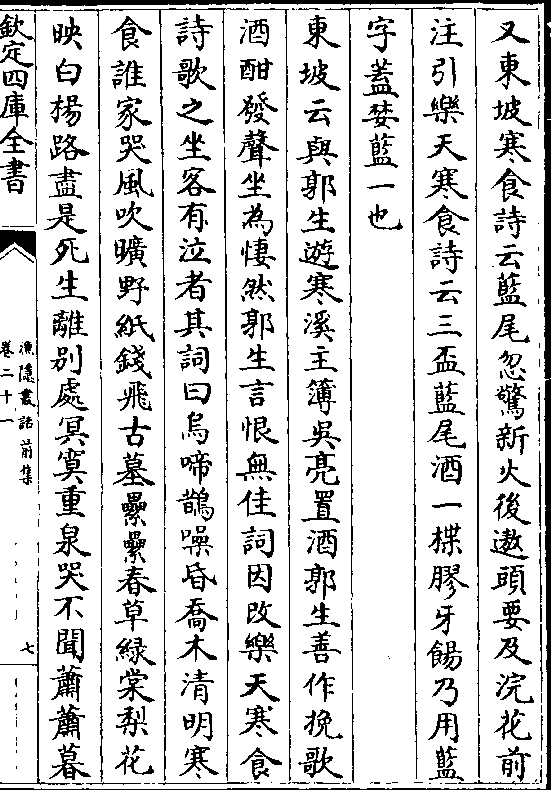 又東坡寒食詩云藍尾忽驚新火後遨頭要及浣花前
注引樂天寒食詩云三盃藍尾酒一楪膠牙餳乃用藍
字蓋婪藍一也
東坡云與郭生遊寒溪主簿吳亮置酒郭生善作挽歌
酒酣發聲坐為悽然郭生言恨無佳詞因改樂天寒食
詩歌之坐客有泣者其詞曰烏啼鵲噪昏喬木清明寒
食誰家哭風吹曠野紙錢飛古墓纍纍春草綠棠梨花
映白楊路盡是死生離別處冥寞重泉哭不聞蕭蕭暮
欽定四庫全書
漁隱叢話前集
卷二十一
七